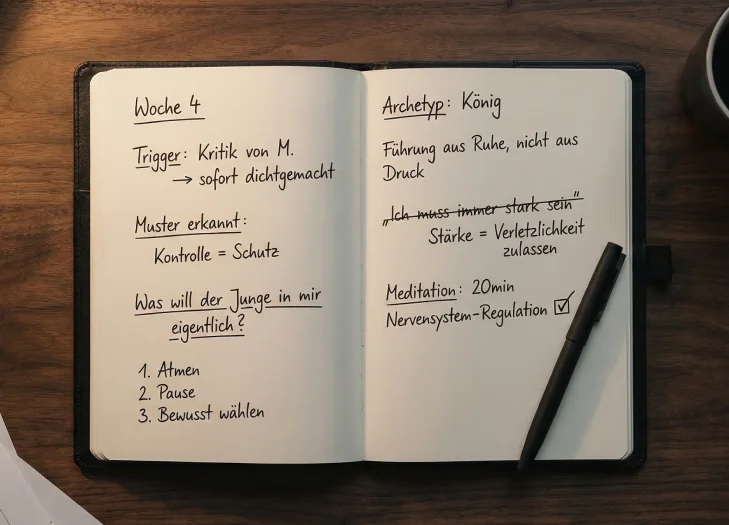 Woche 4
Trigger: Kritik von M.
→ sofort dichtgemacht
Muster erkannt:
Kontrolle = Schutz
Was will der Junge in mir
eigentlich?
1. Atmen
2. Pause
3. Bewusst wählen
Archetyp: König
Führung aus Ruhe, nicht aus
Druck
„Ich muss immer stark sein“
Stärke = Verletzlichkeit
zulassen
Meditation: 20min
Nervensystem-Regulation ☑